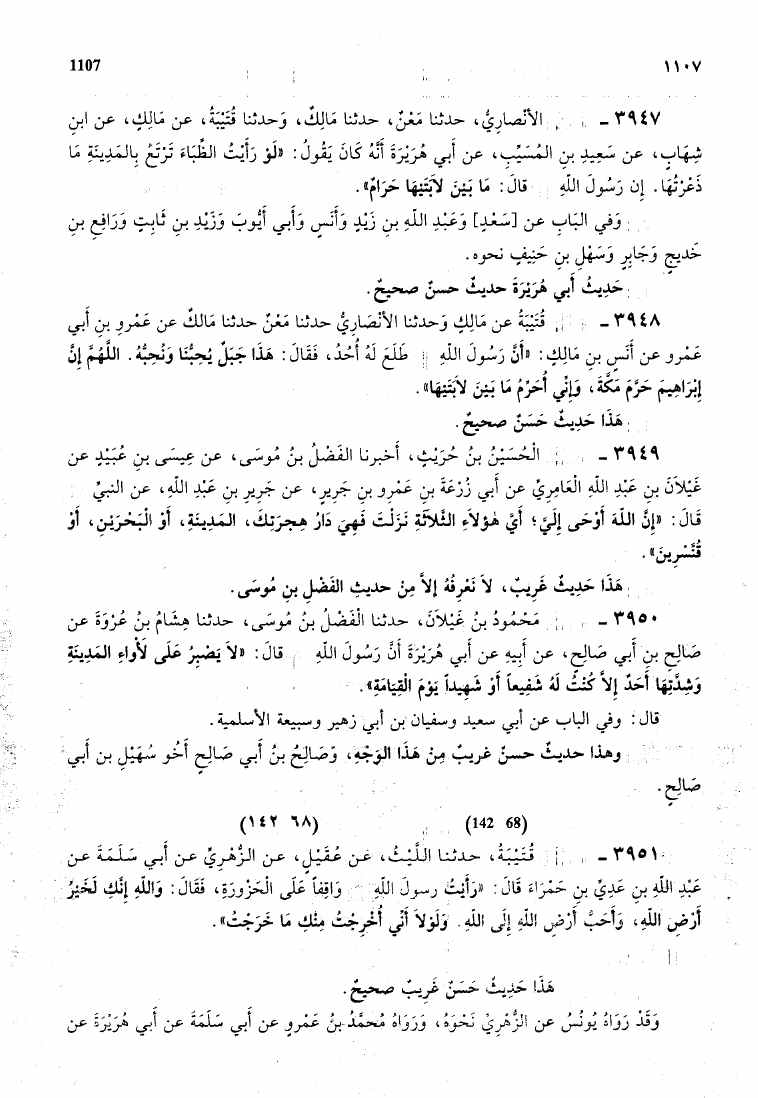 1107 ١١٠٧
٣٩٤٧ ـ الأنْصارِيُّ، حدثنا مَعْنٌ، حدثنا مَالِكٌ، وَحدثنا قُتَيْبَةُ، عن مَالِكٍ، عن ابنِ
شِهَابٍ، عن سَعِيدِ بنِ المُسَيِّبِ، عن أَبي هُرَيْرَةَ أَنَّهُ كَانَ يَقُولُ: «لَوْ رَأَيْتُ الظِّبَاءَ تَرْتَعُ بِالمَدِينَةِ مَا
ذَعَرْتُهَا. إن رَسُولَ اللهِ قالَ: مَا بَيْنَ لاَبَتَيْهَا حَرَامٌ».
وَفي البَابِ عن [سَعْدٍ] وَعَبْدِ اللهِ بنِ زَيْدٍ وَأَنَسٍ وَأَبي أَيُّوبَ وَزَيْدِ بنِ ثَابِتٍ وَرَافِعِ بنِ
خَدِيجٍ وَجَابِرٍ وَسَهْلِ بنِ حَنِيفٍ نحوه.
حَدِيثُ أَبي هُرَيْرَةَ حديثٌ حسنٌ صحيحٌ.
٣٩٤٨ ـ قُتَيْبَةُ عن مَالِكٍ وَحدثنا الأنْصَارِيُّ حدثنا مَعْنٌ حدثنا مَالكٌ عن عَمْرِو بنِ أَبي
عَمْرٍو عن أَنَسِ بنِ مَالِكٍ: «أَنَّ رَسُولَ اللهِ طَلَعَ لَهُ أُحُدٌ، فَقَالَ: هَذَا جَبَلٌ يُحِبُّنَا وَنُحِبُّهُ. اللَّهُمَّ إِنَّ
إِبْرَاهِيمَ حَرَّمَ مَكَّةَ، وَإِنِّي أُحَرِّمُ مَا بَيْنَ لاَبَتَيْهَا».
هَذَا حَدِيثٌ حَسَنٌ صحيحٌ.
٣٩٤٩ ـ الْحُسَيْنُ بنُ حُرَيْثٍ، أخبرنا الفَضْلُ بنُ مُوسَى، عن عِيسَى بنِ عُبَيْدٍ عن
غَيْلاَنَ بنِ عَبْدِ اللهِ الْعَامِرِيِّ عن أَبي زُرْعَةَ بنِ عَمْرِو بنِ جَرِيرٍ، عن جَرِيرِ بنِ عَبْدِ اللهِ، عن النبيِّ
قَالَ: «إِنَّ اللهَ أَوْحَى إِلَيَّ؛ أَيَّ هَؤلاَءِ الثَّلاَثَةِ نَزَلْتَ فَهِيَ دَارُ هِجرَتِكَ، المَدِينَةِ، أَوْ الْبَحْرَيْنِ، أَوْ
قُنَّسْرِينَ».
هَذَا حَدِيثٌ غَرِيبٌ، لاَ نَعْرِفُهُ إلاَّ مِنْ حديثِ الفَضْلِ بنِ مُوسَى.
٣٩٥٠ ـ مَحْمُودُ بنُ غَيْلاَنَ، حدثنا الْفَضْلُ بنُ مُوسَى، حدثنا هِشَامُ بنُ عُرْوَةَ عن
صَالِحِ بنِ أَبي صَالِحٍ، عن أَبِيهِ عن أَبي هُرَيْرَةَ أَنَّ رَسُولَ اللهِ قالَ: «لاَ يَصْبِرُ عَلَى لأْوَاءِ المَدِينَةِ
وَشِدَّتِهَا أَحَدٌ إلاَّ كُنْتُ لَهُ شَفِيعاً أَوْ شَهِيداً يَوْمَ الْقِيَامَةِ».
قال: وفي الباب عن أبي سعيد وسفيان بن أبي زهير وسبيعة الأسلمية.
وهذا حديثٌ حسنٌ غريبٌ مِنْ هَذَا الوَجْهِ، وَصَالِحُ بنُ أَبي صَالِحٍ أَخُو سُهَيْلِ بن أَبي
صَالِحٍ.
(142 68) (٦٨ ١٤٢)
٣٩٥١ ـ قُتَيْبَةُ، حدثنا اللَّيْثُ، عن عُقَيْلٍ، عن الزُّهْرِيِّ عن أَبي سَلَمَةَ عن
عَبْدِ اللهِ بنِ عَدِيِّ بنِ حَمْرَاءَ قَالَ: «رَأَيْتُ رسولَ اللهِ وَاقِفاً عَلَى الْحَزْوَرَةِ، فَقَالَ: وَاللهِ إِنَّكِ لَخَيْرُ
أَرْضِ اللهِ، وَأَحَبُّ أَرْضِ اللهِ إلَى اللهِ. وَلَوْلاَ أَنِّي أُخْرِجْتُ مِنْكِ مَا خَرَجْتُ».
هَذَا حَدِيثٌ حَسَنٌ غَرِيبٌ صحيحٌ.
وَقَدْ رَوَاهُ يُونُسُ عن الزُّهْرِيِّ نَحْوَهُ، وَرَوَاهُ مُحمَّدُ بنُ عَمْرٍو عن أَبي سَلَمَةَ عن أَبي هُرَيْرَةَ عن